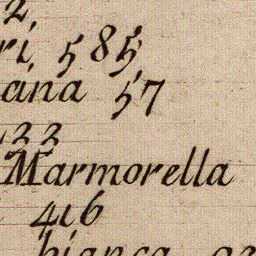 2
ri, 585
ana 57
433
Marmorella
416
bianca